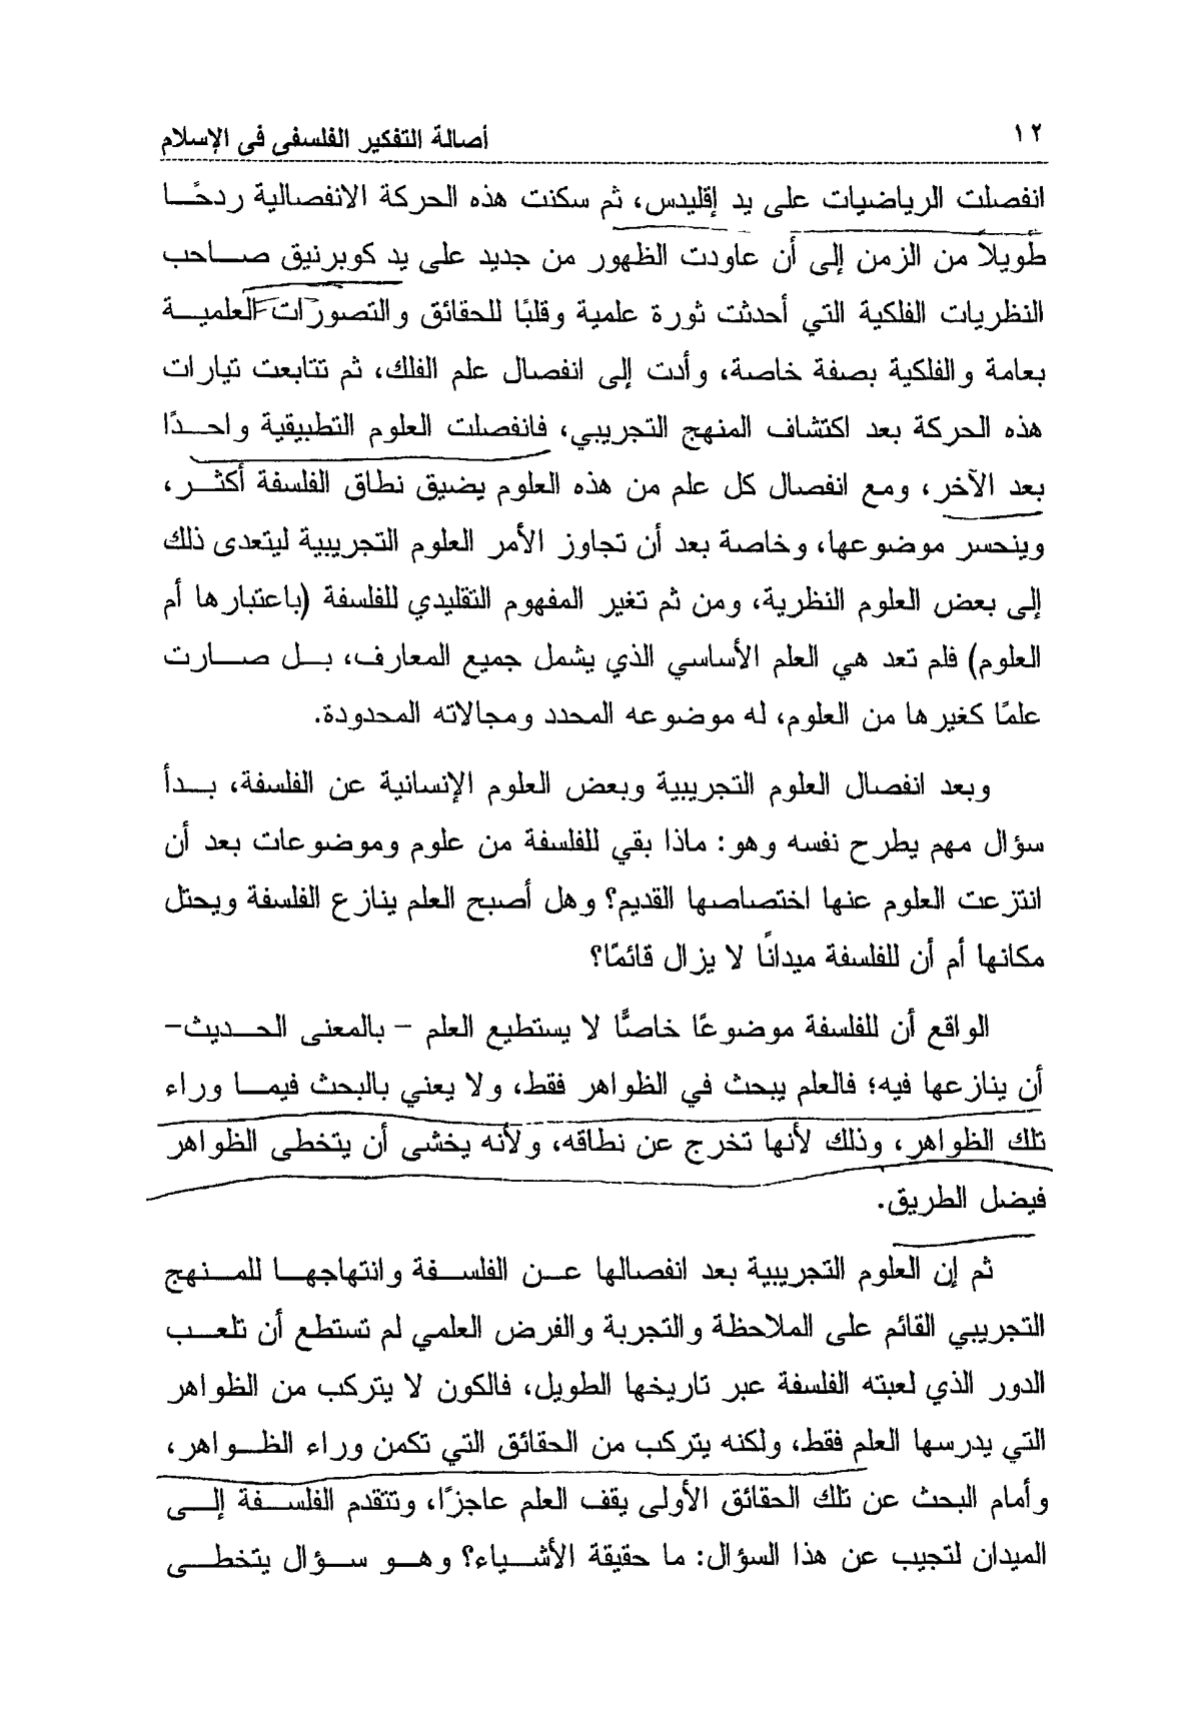 ١٢
أصالة التفكير الفلسفى فى الإسلام
انفصلت الرياضيات على يد إقليدس، ثم سكنت هذه الحركة الانفصالية ردحًا
طويلاً من الزمن إلى أن عاودت الظهور من جديد على يد كوبرنيق صاحب
النظريات الفلكية التي أحدثت ثورة علمية وقلبًا للحقائق والتصورات العلمية
بعامة والفلكية بصفة خاصة، وأدت إلى انفصال علم الفلك، ثم تتابعت تيارات
هذه الحركة بعد اكتشاف المنهج التجريبي، فانفصلت العلوم التطبيقية واحدًا
بعد الآخر، ومع انفصال كل علم من هذه العلوم يضيق نطاق الفلسفة أكثر،
وينحسر موضوعها، وخاصة بعد أن تجاوز الأمر العلوم التجريبية ليتعدى ذلك
إلى بعض العلوم النظرية، ومن ثم تغير المفهوم التقليدي للفلسفة (باعتبارها أم
العلوم) فلم تعد هي العلم الأساسي الذي يشمل جميع المعارف، بل صارت
علمًا كغيرها من العلوم، له موضوعه المحدد ومجالاته المحدودة.
وبعد انفصال العلوم التجريبية وبعض العلوم الإنسانية عن الفلسفة، بدأ
سؤال مهم يطرح نفسه وهو: ماذا بقي للفلسفة من علوم وموضوعات بعد أن
انتزعت العلوم عنها اختصاصها القديم؟ وهل أصبح العلم ينازع الفلسفة ويحتل
مكانها أم أن للفلسفة ميدانًا لا يزال قائمًا؟
الواقع أن للفلسفة موضوعًا خاصًّا لا يستطيع العلم – بالمعنى الحديث–
أن ينازعها فيه؛ فالعلم يبحث في الظواهر فقط، ولا يعني بالبحث فيما وراء
تلك الظواهر، وذلك لأنها تخرج عن نطاقه، ولأنه يخشى أن يتخطى الظواهر
فيضل الطريق.
ثم إن العلوم التجريبية بعد انفصالها عن الفلسفة وانتهاجها للمنهج
التجريبي القائم على الملاحظة والتجربة والفرض العلمي لم تستطع أن تلعب
الدور الذي لعبته الفلسفة عبر تاريخها الطويل، فالكون لا يتركب من الظواهر
التي يدرسها العلم فقط، ولكنه يتركب من الحقائق التي تكمن وراء الظواهر،
وأمام البحث عن تلك الحقائق الأولى يقف العلم عاجزًا، وتتقدم الفلسفة إلى
الميدان لتجيب عن هذا السؤال: ما حقيقة الأشياء؟ وهو سؤال يتخطى